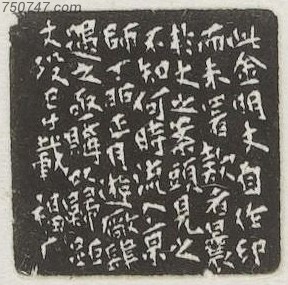 750747.com
此金明丈自作印
而未署款者曩
於丈之案頭見之
不知何時流入京
師丁 正月遊廠肆
遇之亟購以歸距
丈歿已廿載 福厂